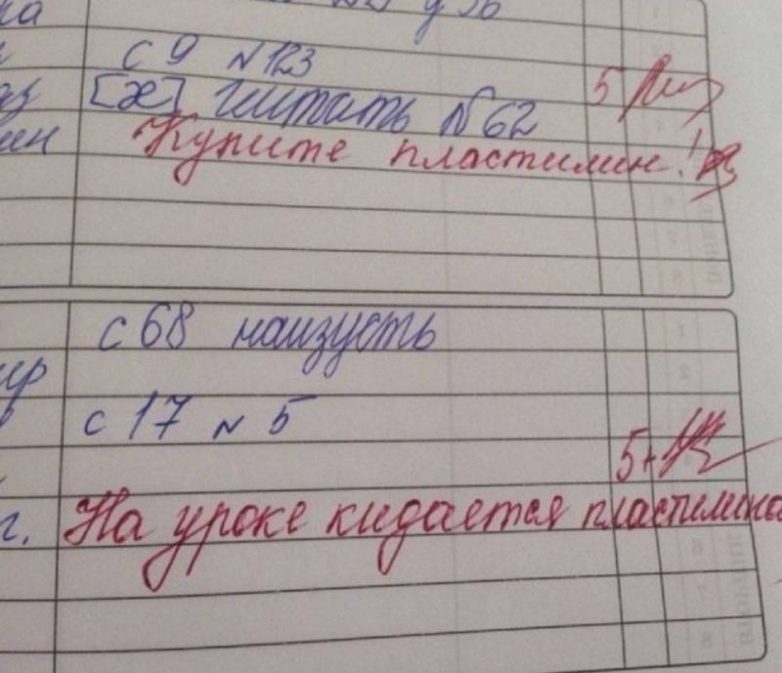 ка
с 9 № 123
[ж] читать № 62 5
Купите пластилин!
с 68 наизусть
с 17 № 5
5+
г. На уроке кидается пластилино